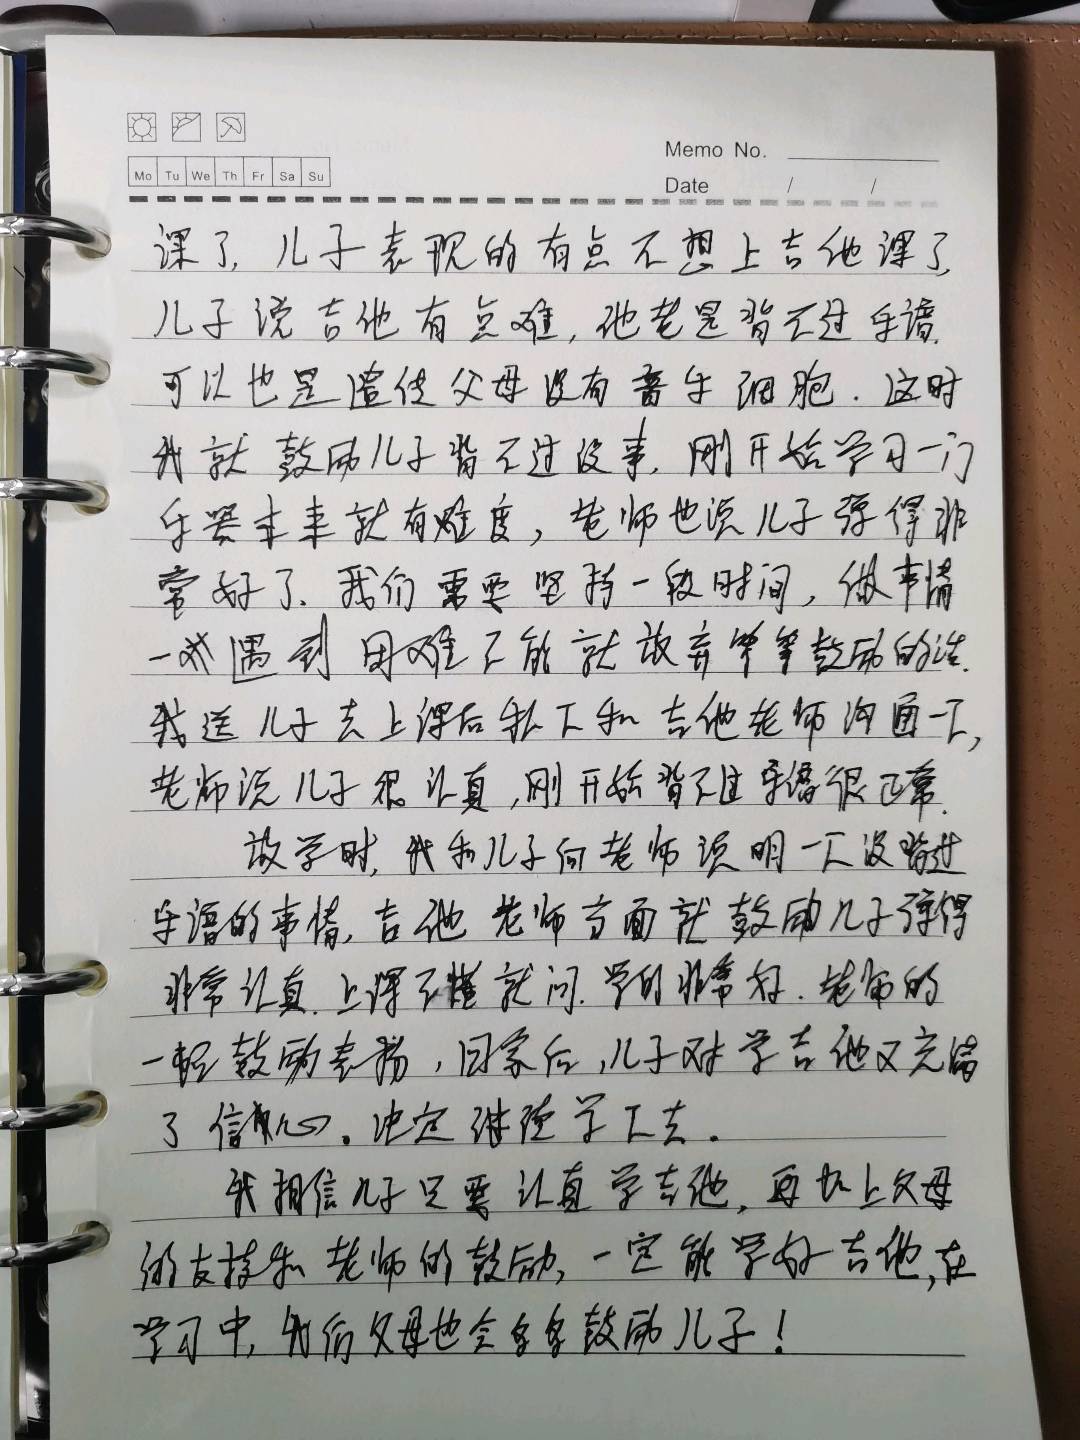 Memo No.
Date / /
Mo Tu We Th Fr Sa Su
课了,儿子表现的有点不想上吉他课了,
儿子说吉他有点难,他老是背不过乐谱.
可以也是遗传父母没有音乐细胞.这时
我就鼓励儿子背不过没事.刚开始学习一门
乐器本来就有难度,老师也说儿子弹得非
常好了.我们需要坚持一段时间,做事情
一戓遇到困难不能就放弃等等鼓励的话.
我送儿子去上课后私下和吉他老师沟通一下,
老师说儿子很认真,刚开始背不过乐谱很正常.
放学时,我和儿子向老师说明一下没背过
乐谱的事情,吉他老师方面就鼓励儿子弹得
非常认真.上课不懂就问.学的非常好.老师的
一轮鼓励表扬,回家后,儿子对学吉他又充满
了信心。决定继续学下去.
我相信儿子只要认真学吉他,再加上父母
的支持和老师的鼓励,一定能学好吉他,在
学习中,我们父母也会多多鼓励儿子!